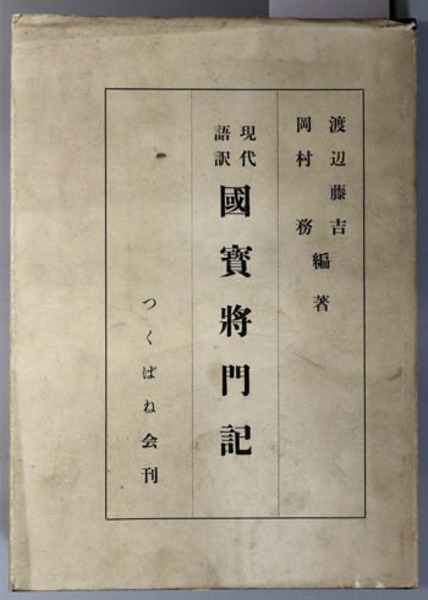 渡辺藤吉
岡村務
編著
現代
語訳
國寳將門記
つくばね会刊